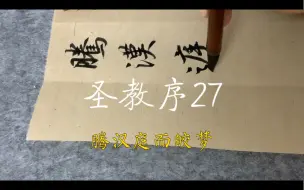 騰漢庭
圣教序27
腾汉庭而皎梦